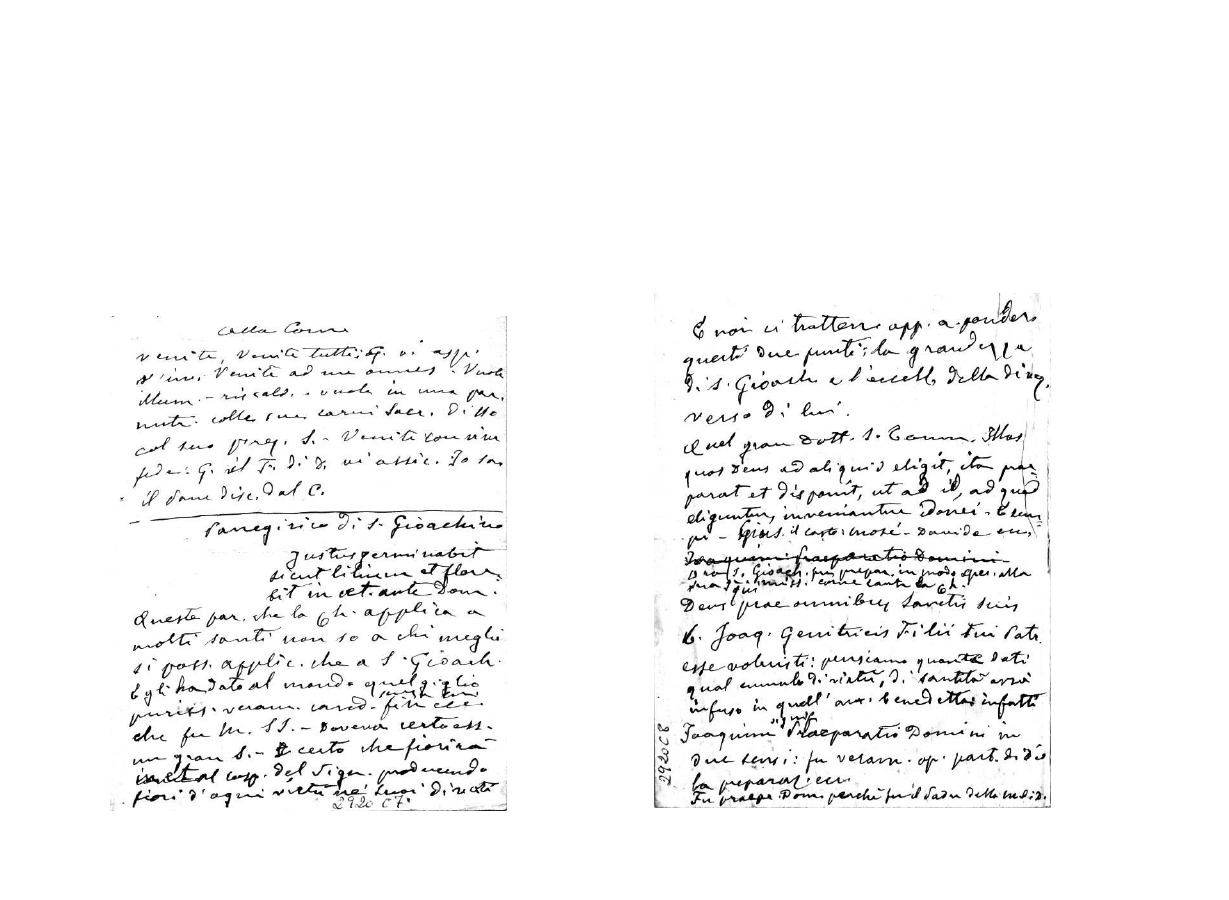 alla Comu
venite, venite tutti; G. vi asp.
Venite ad me omnes. Vuole
illum. - riscald. - vuole in una par.
nutr. colle sue carni sacr. Disse
col suo prez. S. - Venite con viva
fede: G. il F. di D. vi assic. Io son
il pane disc. dal C.
Panegirico di S. Gioachino
Justus germinabit
sicut lilium et flore-
bit in aet. ante Dom.
Queste par. che la Ch. applica a
molti santi non so a chi meglio
si poss. applic. che a S. Gioach.
Egli ha dato al mondo quel giglio
puriss. veram. cand.
che fu M. SS. - Doveva certo ess.
un gran S. - E certo che fiorirà
al cosp. del Sign. producendo
fiori d'ogni virtù ne' suoi divoti
2920 C7
E noi ci tratterr. opp. a ponder.
questi due punti: la grandezza
di S. Gioach. e l'eccell. della divoz.
verso di lui.
Quel gran Dott. S. Tomm. Illos
quos Deus ad aliquid eligit, ita prae
parat et disponit, ut ad id, ad quod
eliguntur, inveniantur idonei - Esem
pi - Gius. il casto: Mosè - Davide ecc.
Joaquim praeparatio Domini
Or S. Gioach. fu prepar. in modo spec. alla
sua come canta la Ch.
Deus prae omnibus Sanctis tuis
B. Joaq. Genitricis Filii tui Patr.
esse voluisti: pensiamo quante doti
qual cumulo di virtù, di santità avrà
infuso in quell' an. benedetta: infatti
Joaquim signif. Praeparatio Domini in
due sensi: fu veram. op. part. di Dio
la preparaz. ecc.
Fu praep. Dom. perchè fu il Padre della
2920 C8